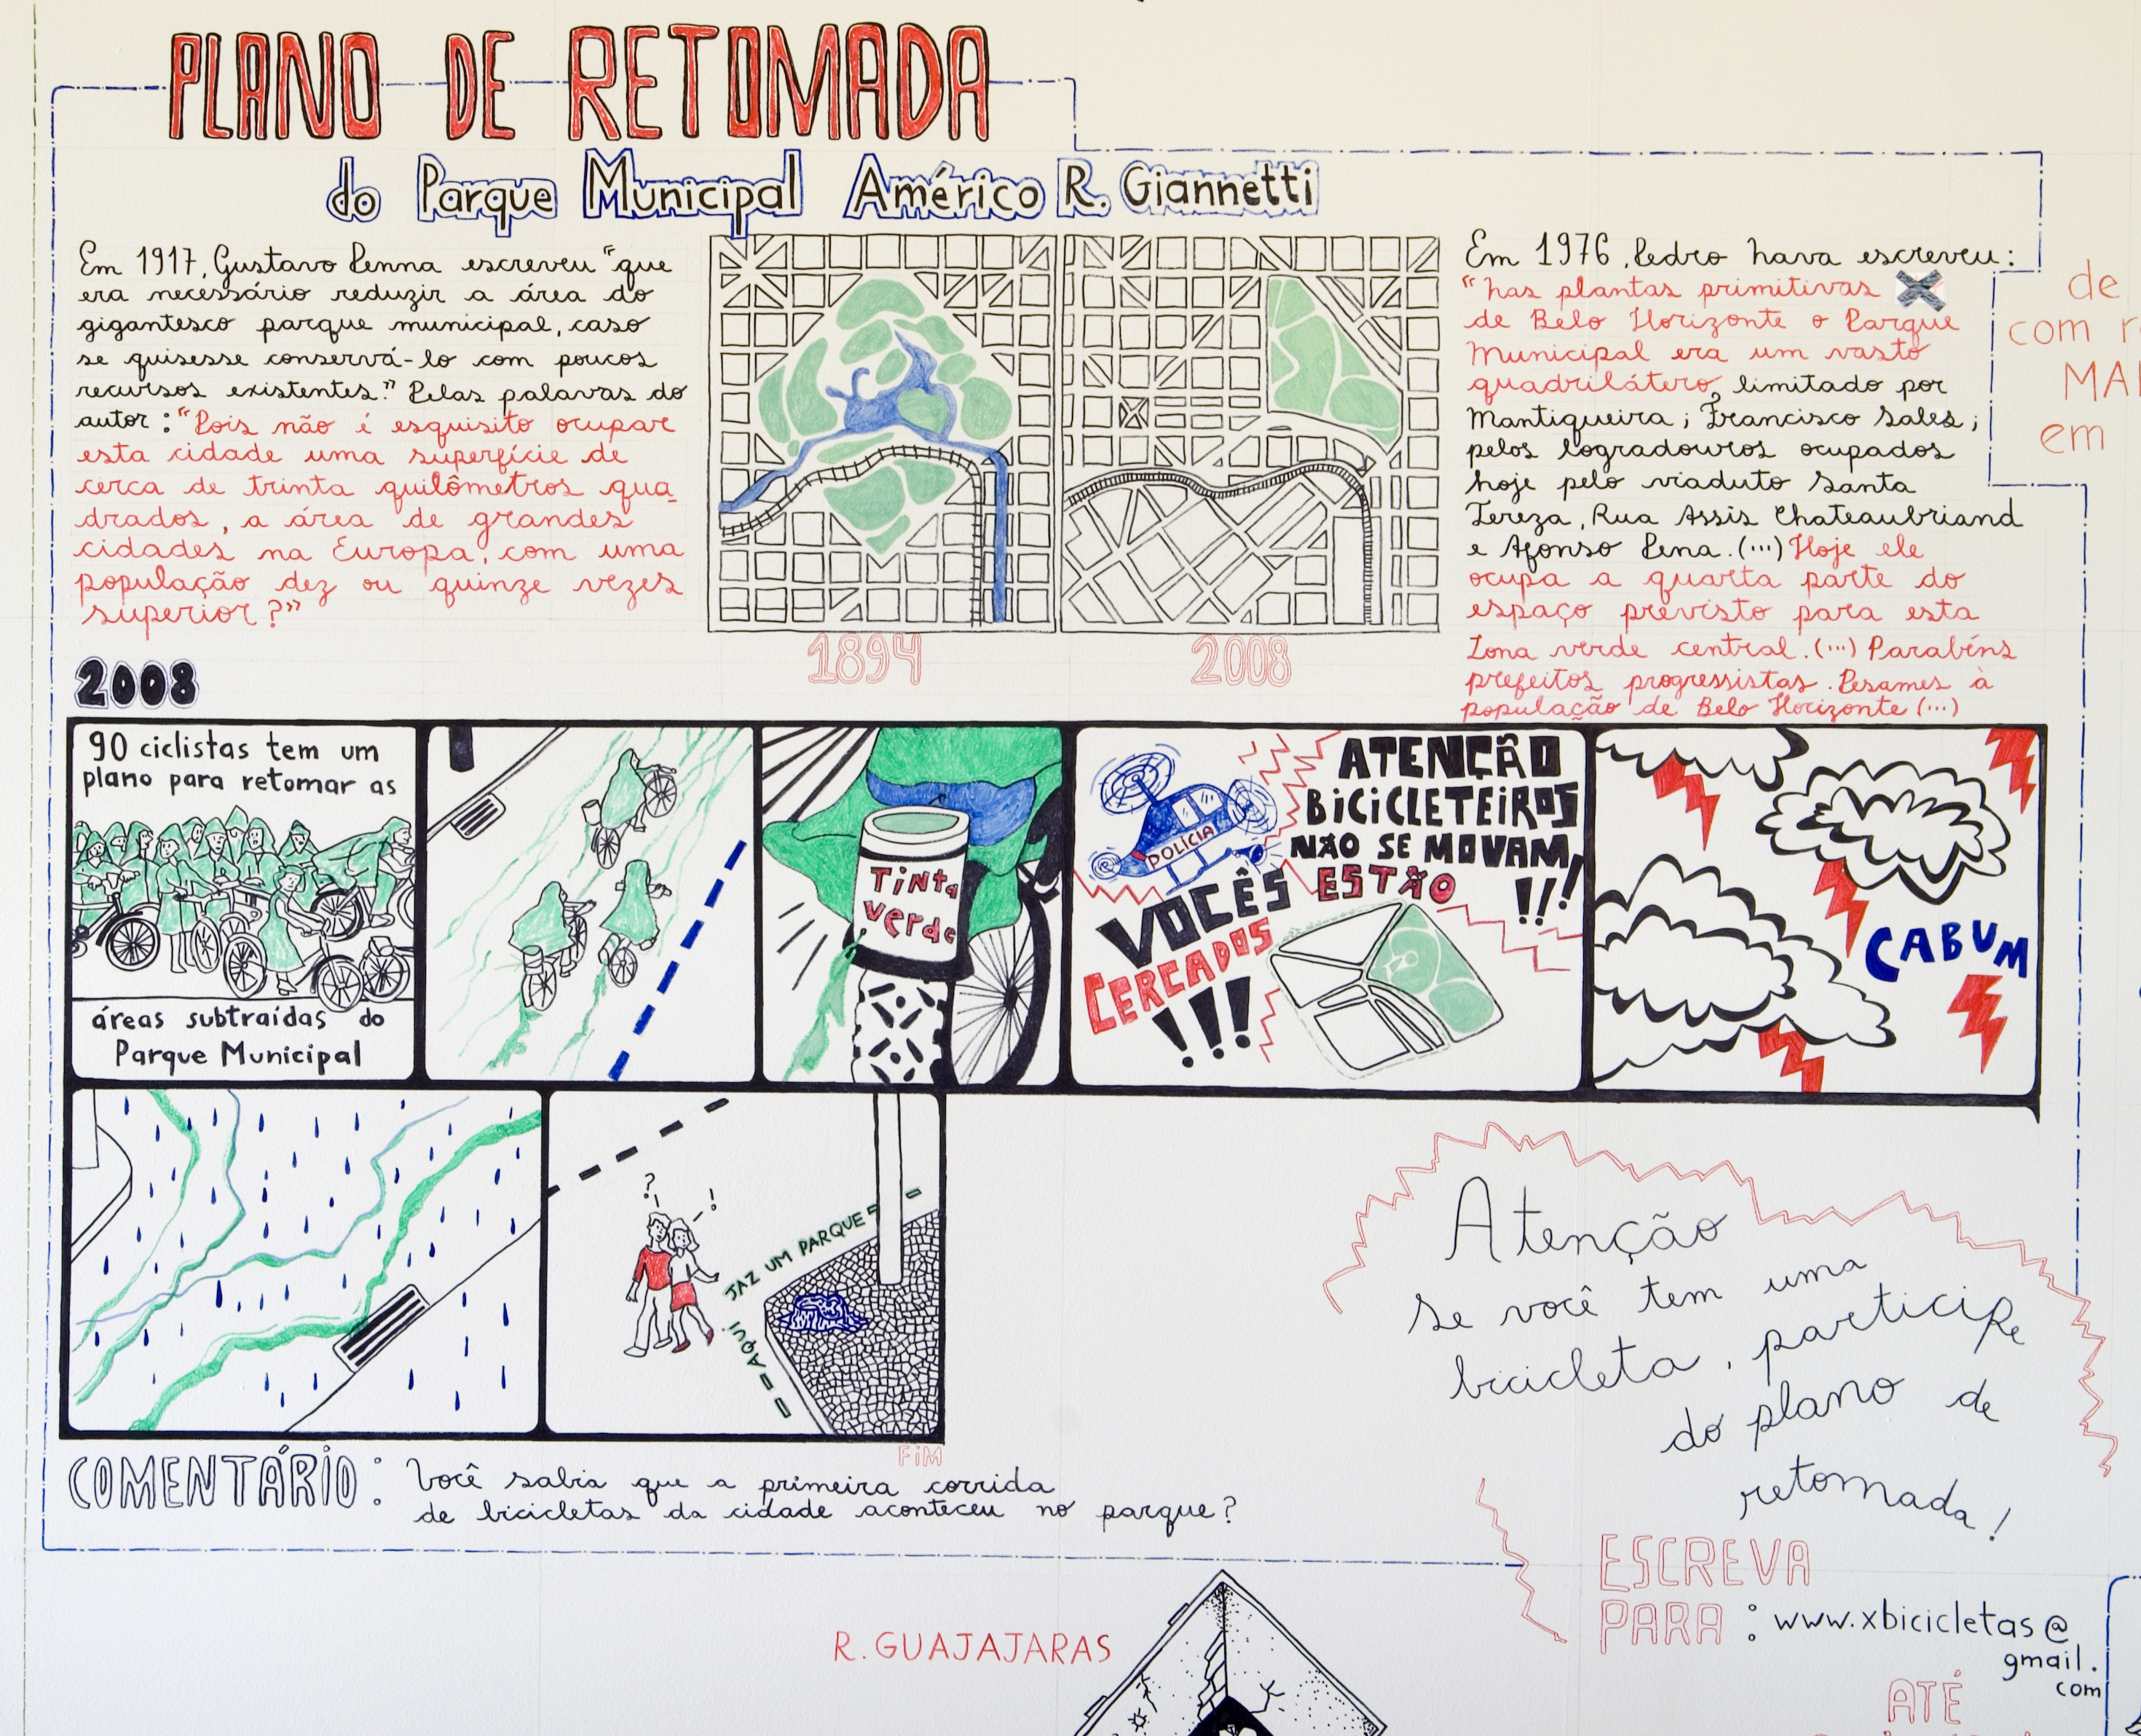 PLANO DE RETOMADA
do Parque Municipal Américo R. Giannetti
Em 1917, Gustavo Penna escreveu "que
era necessário reduzir a área do
gigantesco parque municipal, caso
se quisesse conservá-lo com poucos
recursos existentes." Pelas palavas do
autor: "Pois não é esquisito ocupar
esta cidade uma superfície de
cerca de trinta quilômetros qua_
drados, a área de grandes
cidades na Europa, com uma
população dez ou quinze vezes
superior?"
1894
2008
Em 1976, Pedro Nava escreveu:
"Nas plantas primitivas
de Belo Horizonte o Parque
Municipal era um vasto
quadrilátero, limitado por
Mantiqueira; Francisco Sales;
pelos logradouros ocupados
hoje pelo viaduto Santa
Tereza, Rua Assis Chateaubriand
e Afonso Pena. (...) Hoje ele
ocupa a quarta parte do
espaço previsto para esta
Zona verde central. (...) Parabéns
prefeitos progressistas. Pesames à
população de Belo Horizonte (...)
de
com r
MA
em
2008
90 ciclistas tem um
plano para retomar as
áreas subtraídas do
Parque Municipal
Tinta
verde
POLÍCIA
ATENÇÃO
BICICLETEIROS
NÃO SE MOVAM,
VOCÊS ESTÃO !!!
CERCADOS
!!!
CABUM
? !
AQUI JAZ UM PARQUE
FIM
COMENTÁRIO: Você sabia que a primeira corrida
de bicicletas da cidade aconteceu no parque?
Atenção
Se você tem uma
bicicleta, participe
do plano de
retomada!
ESCREVA
PARA: www.xbicicletas@
gmail.
com
ATÉ
R. GUAJAJARAS